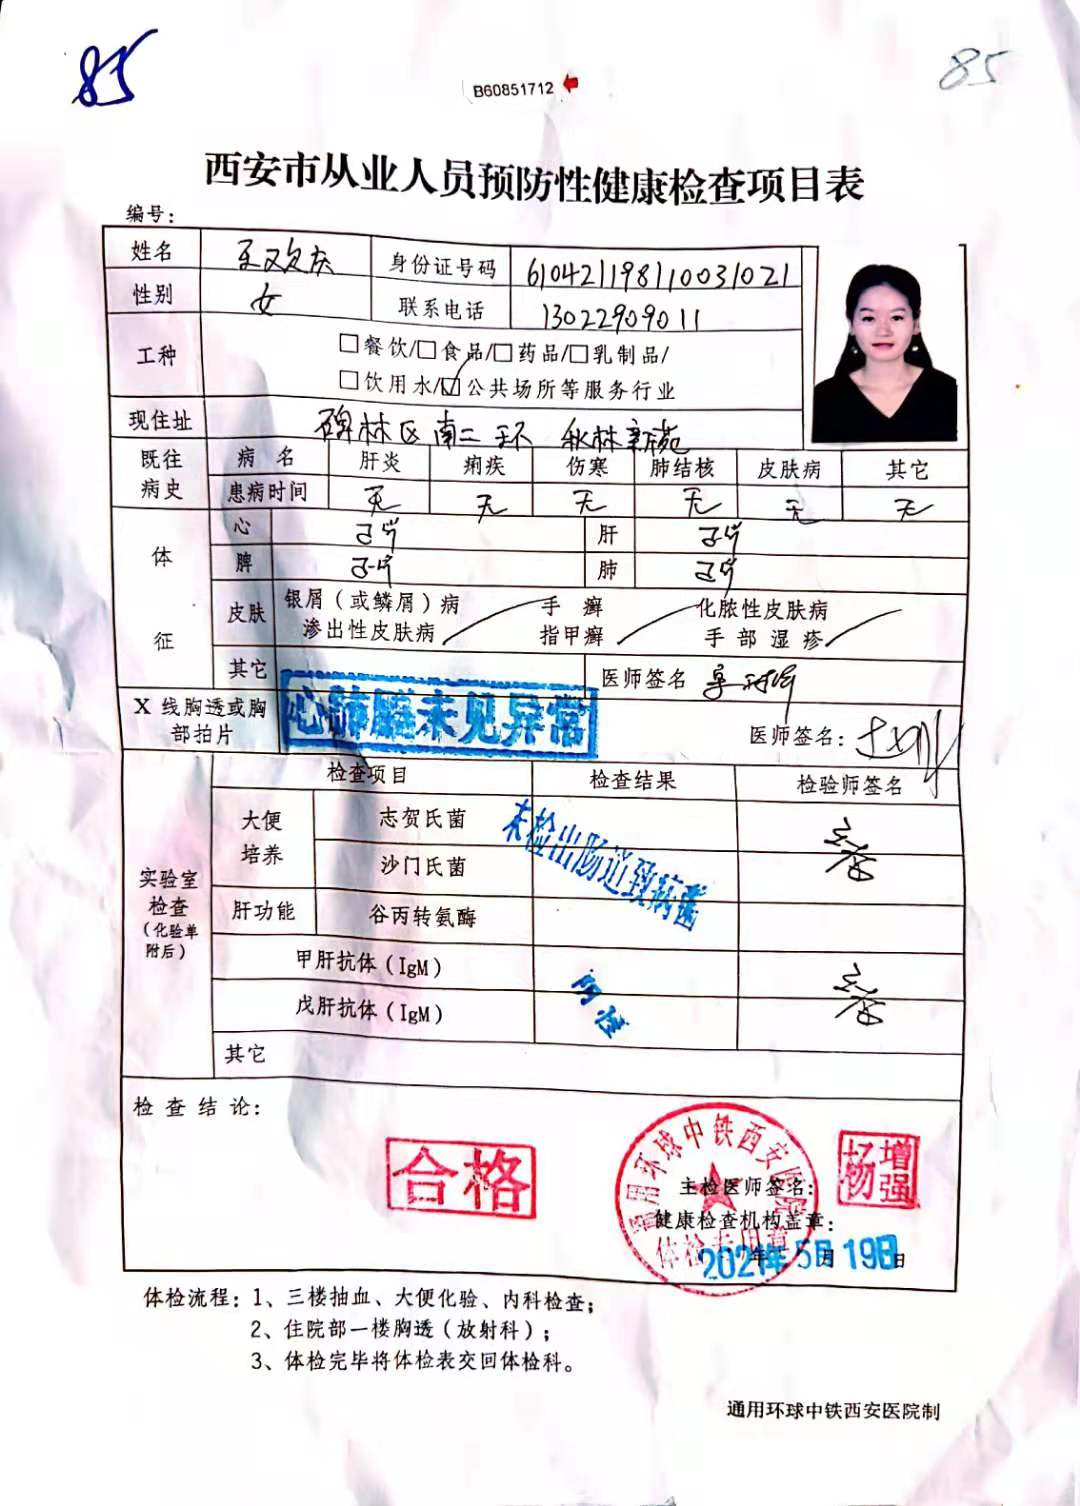 85
B60851712
85
西安市从业人员预防性健康检查项目表
编号:
姓名 王双庆 身份证号码 610421198110031021
性别 女 联系电话 13022909011
工种 □餐饮/□食品/□药品/□乳制品/
□饮用水/☑公共场所等服务行业
现住址 碑林区南二环 秋林新苑
既往病史 病名 肝炎 痢疾 伤寒 肺结核 皮肤病 其它
患病时间 无 无 无 无 无 无
体征 心 肝
脾 肺
皮肤 银屑(或鳞屑)病 手癣 化脓性皮肤病
渗出性皮肤病 指甲癣 手部湿疹
其它 医师签名
X线胸透或胸部拍片 心肺膈未见异常 医师签名:
检查项目 检查结果 检验师签名
实验室检查(化验单附后)
大便培养 志贺氏菌 未检出肠道致病菌
沙门氏菌
肝功能 谷丙转氨酶
甲肝抗体(IgM) 阴性
戊肝抗体(IgM)
其它
检查结论:
合格
通用环球中铁西安医院
体检专用章
主检医师签名: 杨增强
健康检查机构盖章:
2021年5月19日
体检流程:1、三楼抽血、大便化验、内科检查;
2、住院部一楼胸透(放射科);
3、体检完毕将体检表交回体检科。
通用环球中铁西安医院制